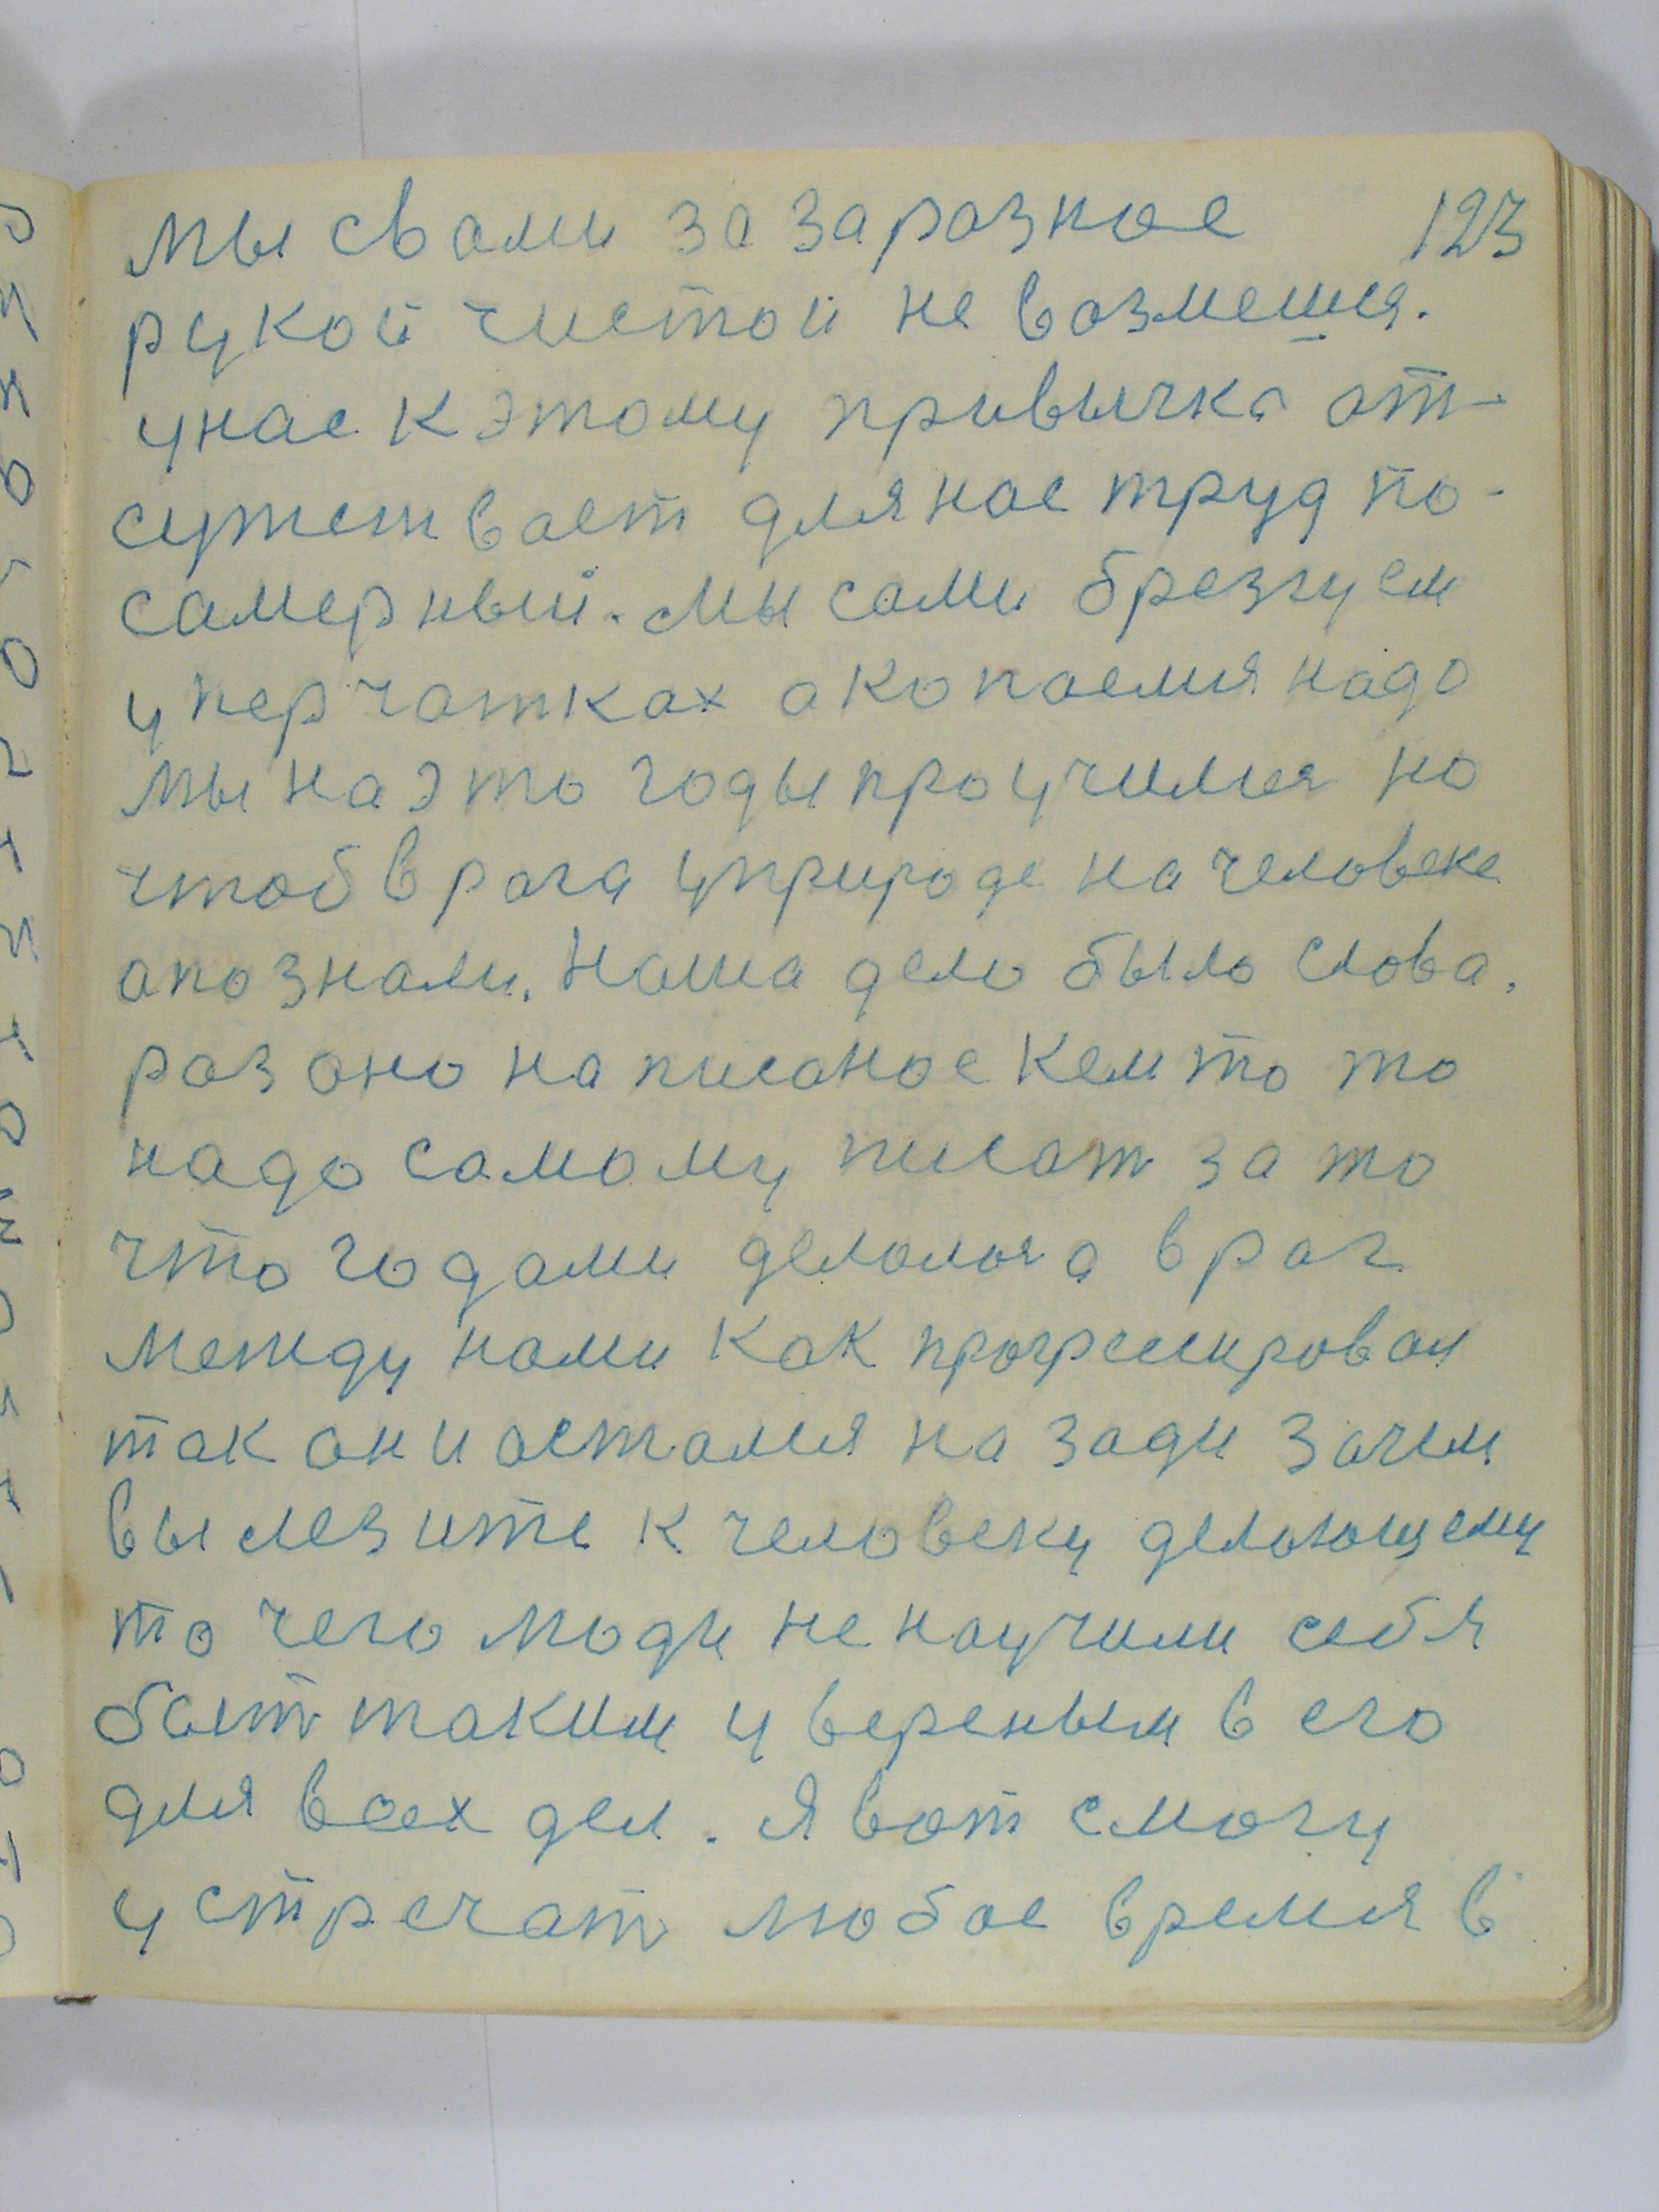 мы свами за заразное 123
рукой чистой не возмешся.
унас к этому привычка от-
сужетвает для нас труд по-
самерный. Мы сами брезгуем
у перчатках а копаемся надо
мы на это годы проучимся но
чтоб врага уприроде на человеке
апознали. Наша дело было слова.
раз оно написаное кемто то
надо самому писат за то
что годами делалося а враг
между нами как прогресировал
так он и остался на зади зачем
вы лезите к человеку делающему
то чего люди не научили себя
быт таким увереным в его
для всех дел. Я вот смогу
устречат любое время в